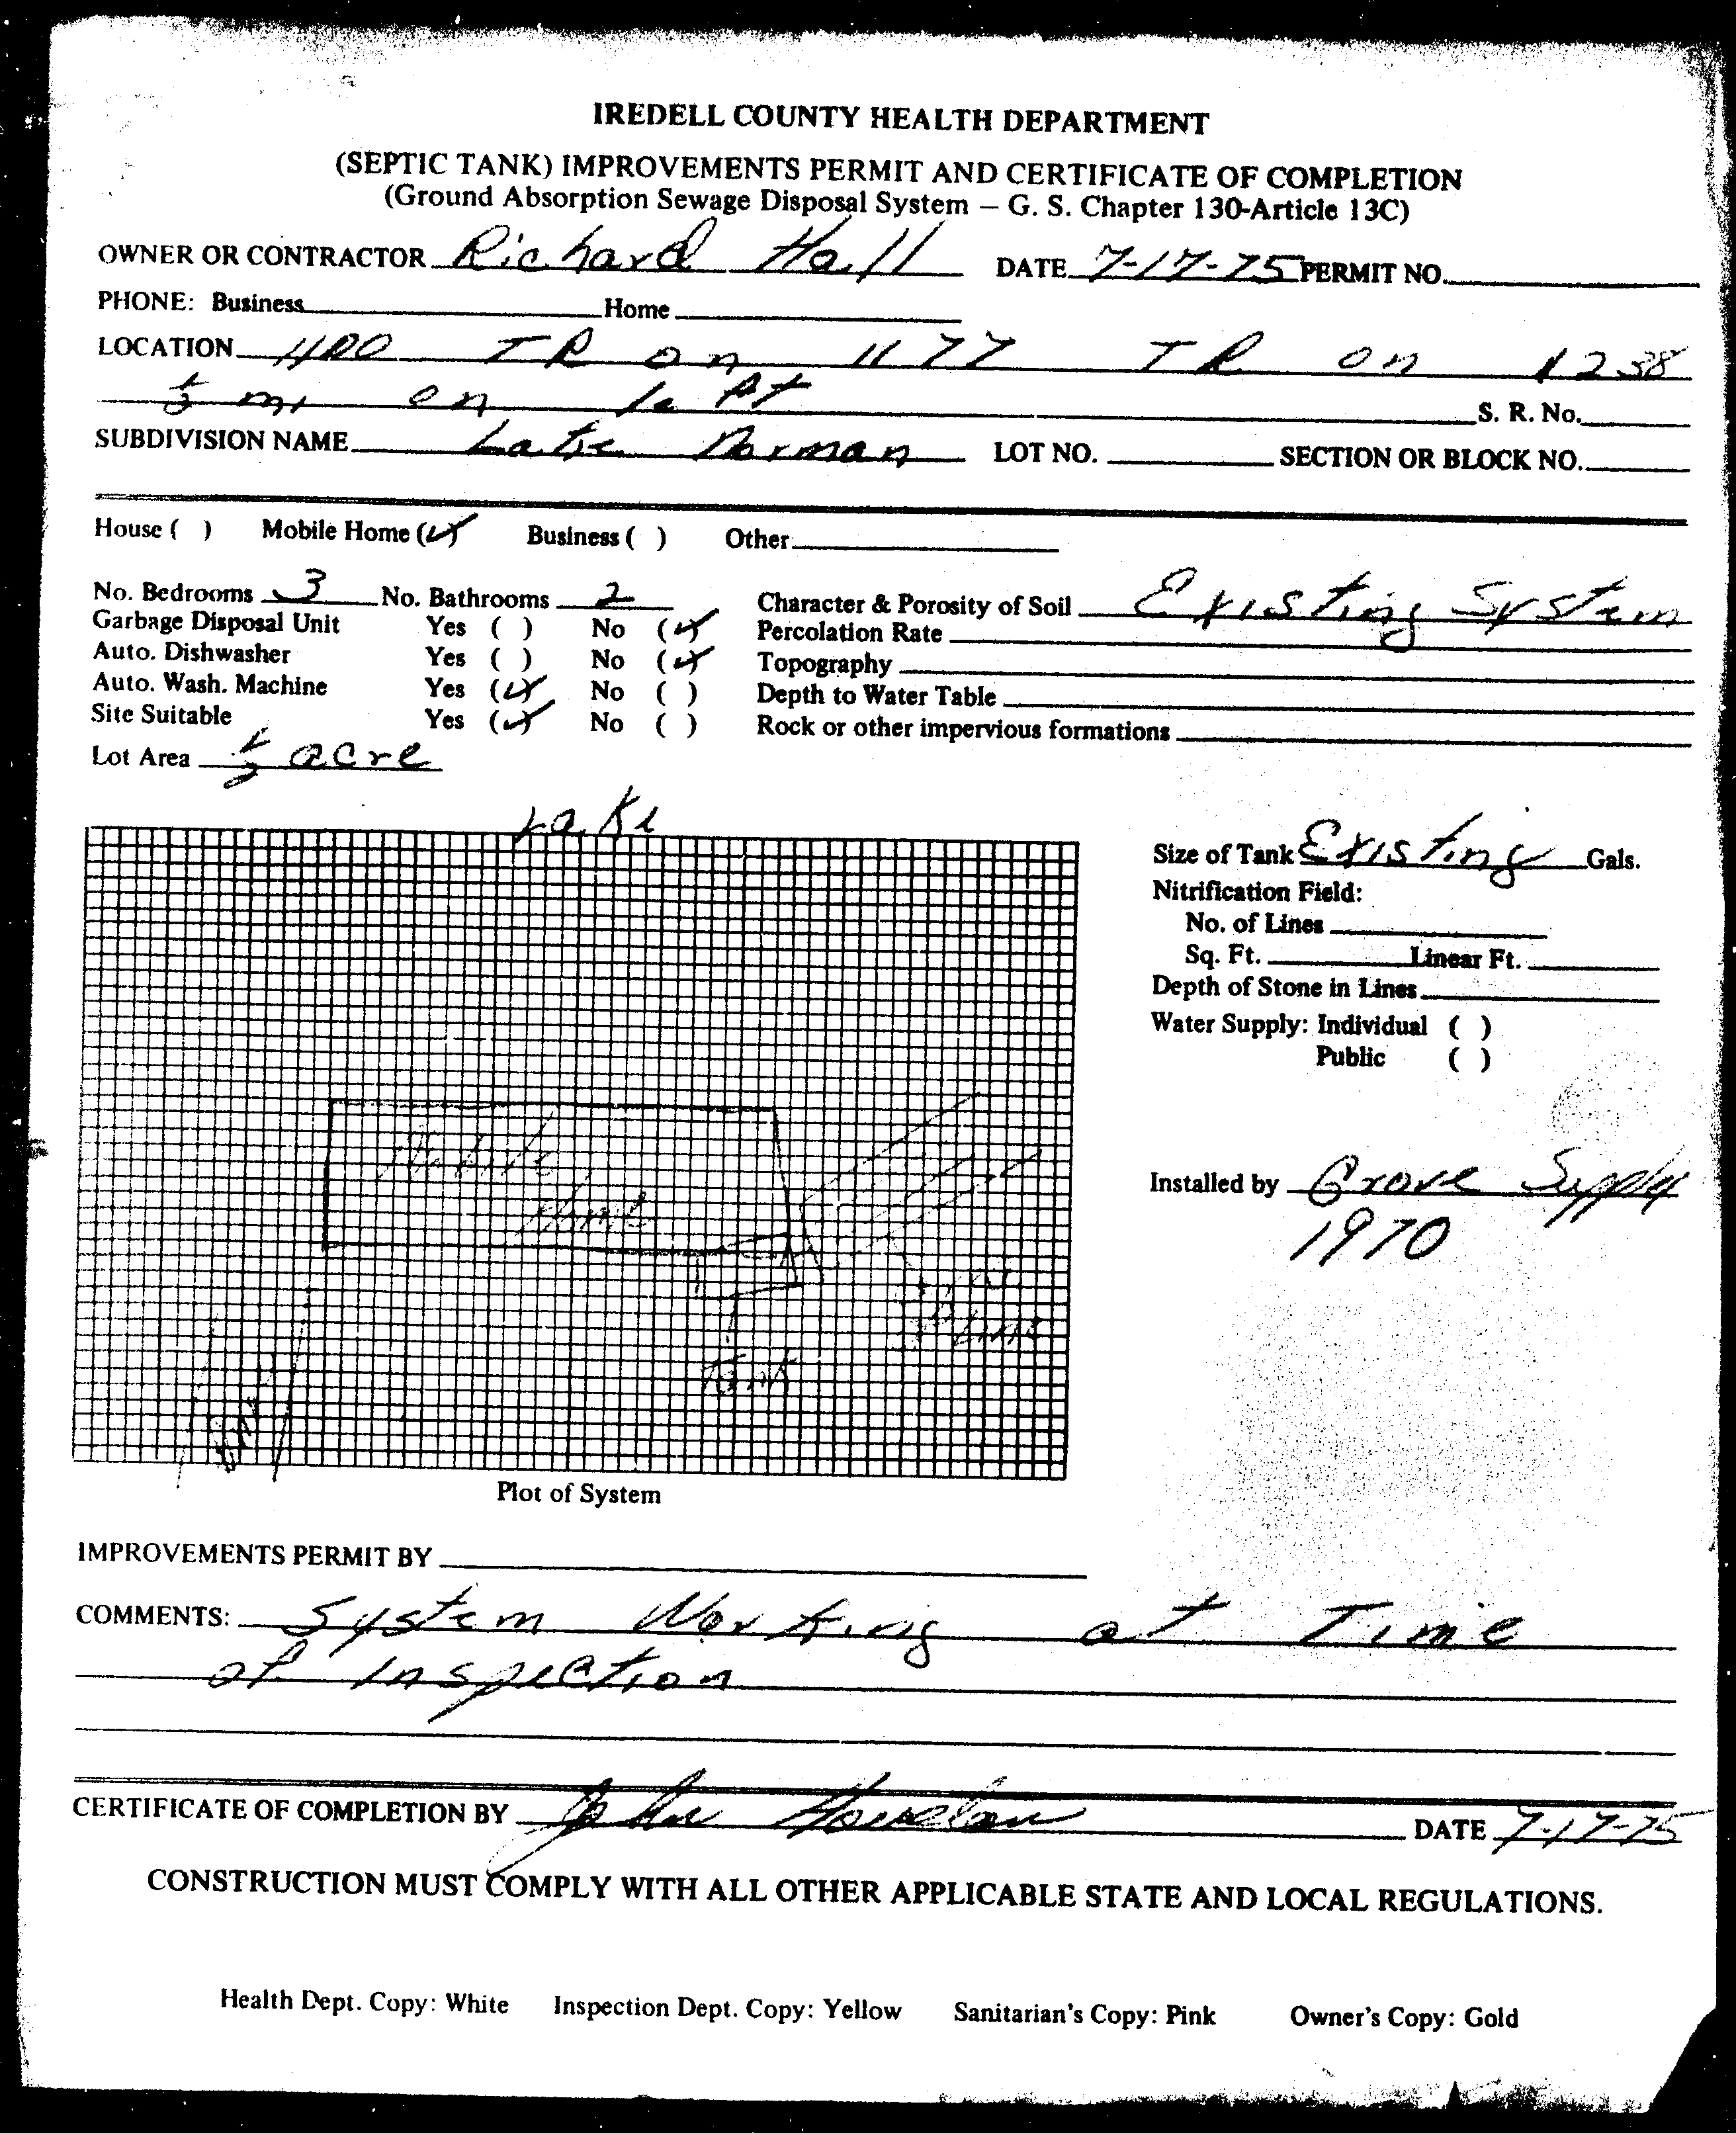 IREDELL COUNTY HEALTH DEPARTMENT
(SEPTIC TANK) IMPROVEMENTS PERMIT AND CERTIFICATE OF COMPLETION
(Ground Absorption Sewage Disposal System — G. S. Chapter 130-Article 13C)
OWNER OR CONTRACTOR Richard Hall DATE 7-17-75 PERMIT NO.
PHONE: Business Home
LOCATION TR on 1177 TR on 1238
mi on Pt S. R. No.
SUBDIVISION NAME Lake Norman LOT NO. SECTION OR BLOCK NO.
House ( ) Mobile Home (✓) Business ( ) Other
No. Bedrooms 3 No. Bathrooms 2 Character & Porosity of Soil Existing System
Garbage Disposal Unit Yes ( ) No (✓) Percolation Rate
Auto. Dishwasher Yes ( ) No (✓) Topography
Auto. Wash. Machine Yes (✓) No ( ) Depth to Water Table
Site Suitable Yes (✓) No ( ) Rock or other impervious formations
Lot Area ½ acre
Lake
Size of Tank Existing Gals.
Nitrification Field:
No. of Lines
Sq. Ft. Linear Ft.
Depth of Stone in Lines
Water Supply: Individual ( )
Public ( )
Mobile
Home
Installed by Grove Supply
1970
Tank
Plot of System
IMPROVEMENTS PERMIT BY
COMMENTS: System Working at Time
of Inspection
CERTIFICATE OF COMPLETION BY John DATE 7-17-75
CONSTRUCTION MUST COMPLY WITH ALL OTHER APPLICABLE STATE AND LOCAL REGULATIONS.
Health Dept. Copy: White Inspection Dept. Copy: Yellow Sanitarian's Copy: Pink Owner's Copy: Gold